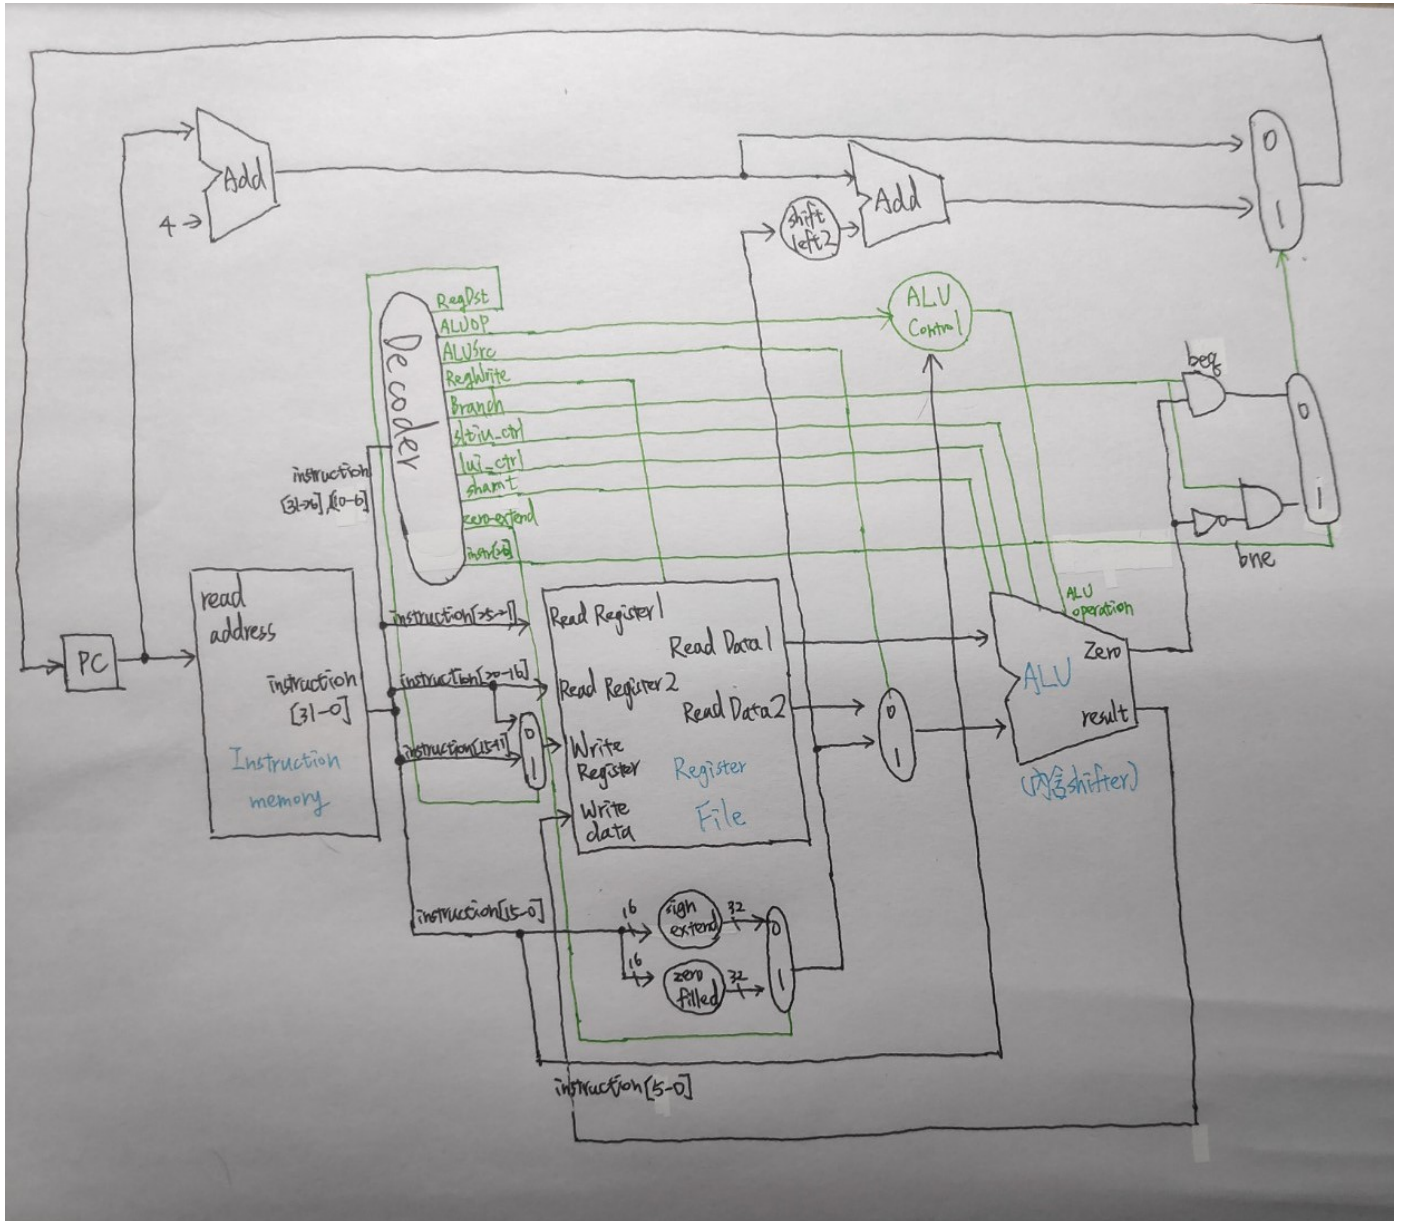 Add
4
Add
shift
left2
0
1
RegDst
ALUOP
ALUSrc
RegWrite
Branch
sltiu_ctrl
lui_ctrl
shamt
zero-extend
Decoder
ALU
Control
beq
0
1
bne
instruction
PC
read
address
instruction
[31-0]
Instruction
memory
instruction[20-16]
0
1
Read Register1
Read Register2
Write
Register
Write
data
Read Data1
Read Data2
Register
File
0
1
ALU
operation
Zero
ALU
result
(内含shifter)
instruction[15-0]
16
sign
extend
32
16
zero
filled
32
0
1
instruction[5-0]